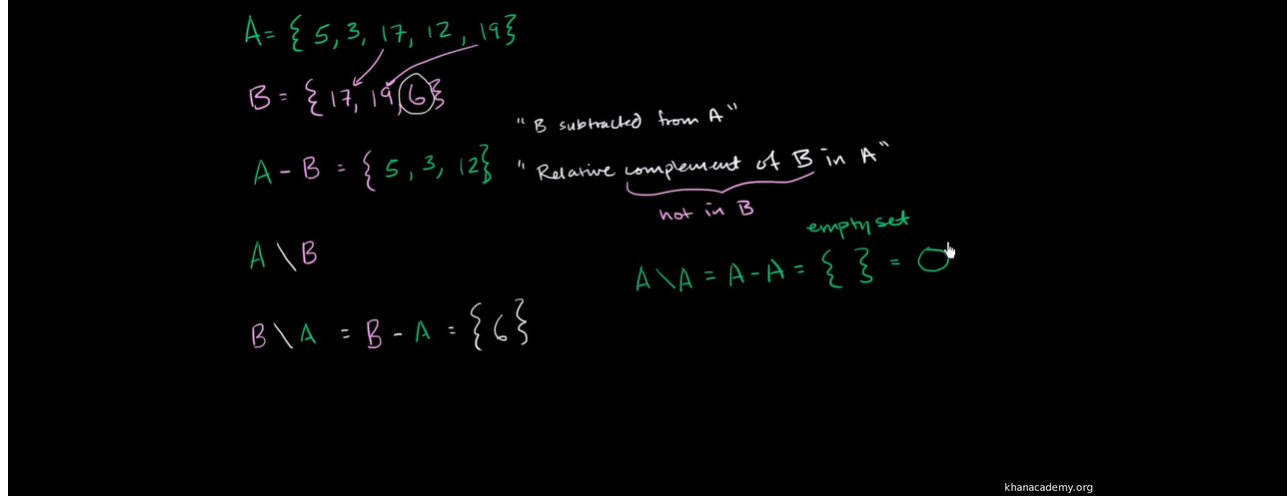 A = { 5, 3, 17, 12, 19}
B = { 17, 19, 6}
"B subtracted from A"
A - B = { 5, 3, 12} "Relative complement of B in A"
not in B
empty set
A \ B
A \ A = A - A = { } = O
B \ A = B - A = {6}
khanacademy.org